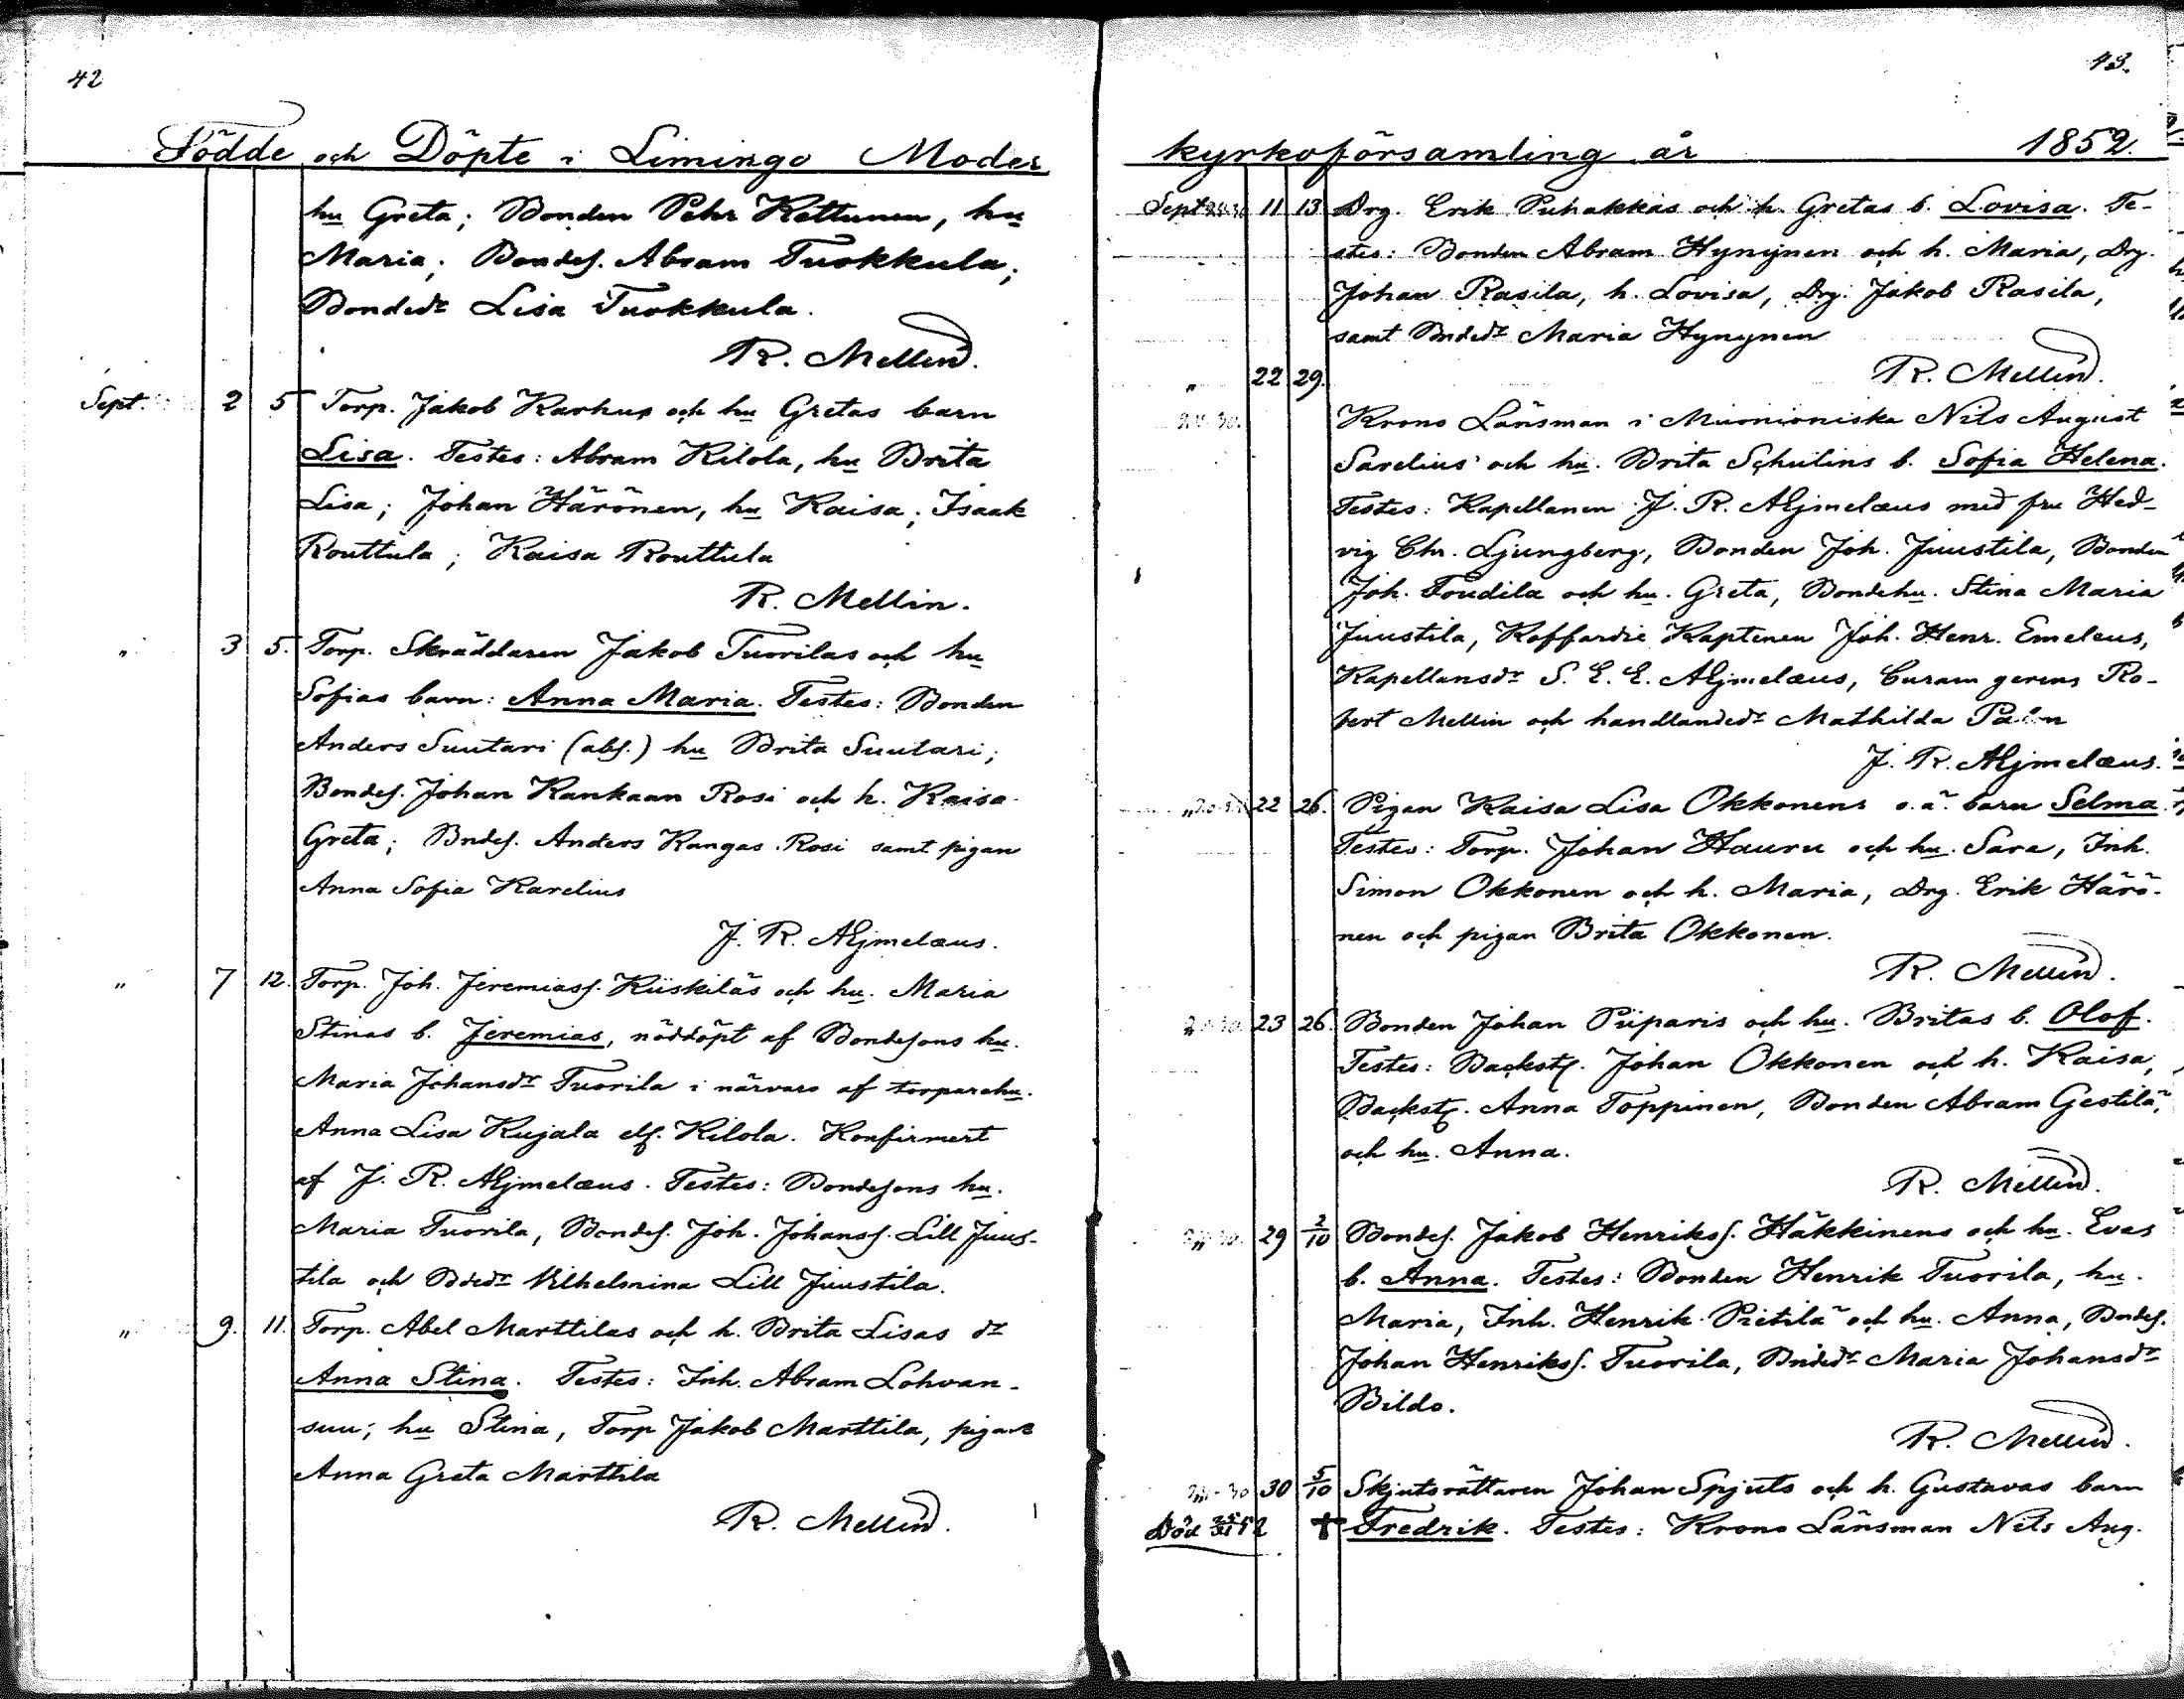 42
Födde och Döpte i Limingo Moder
hu Greta; Bonden Pehr Kettunen, hu
Maria; Bondes. Abram Tuokkula;
Bondedr Lisa Tuokkula.
R. Mellin.
Sept. 2 5 Torp. Jakob Karhus och hu Gretas barn
Lisa. Testes: Abram Kilola, hu Brita
Lisa; Johan Härönen, hu Kaisa; Isaak
Routtula; Kaisa Routtula
R. Mellin.
" 3 5. Torp. Skräddaren Jakob Tuorilas och hu
Sofias barn: Anna Maria. Testes: Bonden
Anders Suutari (abs.) hu Brita Suutari;
Bondes. Johan Kankaan Rosi och h. Kaisa
Greta; Bndes. Anders Kangas Rosi samt pigan
Anna Sofia Karelius
J. R. Aljmelæus.
" 7 12. Torp. Joh. Jeremiass. Kiiskiläs och hu. Maria
Stinas b. Jeremias, nöddöpt af Bondesons hu.
Maria Johansdr Tuorila i närvaro af torparehu.
Anna Lisa Kujala elf. Kilola. Konfirmert
af J. R. Aljmelæus. Testes: Bondesons hu.
Maria Tuorila, Bondes. Joh. Johanss. Lill Juus-
tila och Bdedr Vilhelmina Lill Juustila.
" 9. 11. Torp. Abel Marttilas och h. Brita Lisas dr
Anna Stina. Testes: Inh. Abram Lohvan-
suu; hu Stina, Torp Jakob Marttila, pigan
Anna Greta Marttila
R. Mellin.
43.
kyrkoförsamling år 1852.
Sept 11 13 Drg. Erik Puhakkas och h. Gretas b. Lovisa. Te-
stes: Bonden Abram Hynynen och h. Maria, Drg.
Johan Rasila, h. Lovisa, Drg. Jakob Rasila,
samt Bndedr Maria Hynynen
R. Mellin.
" 22 29.
Krono Länsman i Muonioniska Nils August
Sarelius och hu. Brita Schulins b. Sofia Helena.
Testes: Kapellanen J. R. Aljmelæus med fru Hed-
vig Chr. Ljungberg, Bonden Joh. Juustila, Bonden
Joh. Toudila och hu. Greta, Bondehu. Stina Maria
Juustila, Koffardie Kaptenen Joh. Henr. Emeleus,
Kapellansdr S. E. E. Aljmelæus, Curam gerens Ro-
bert Mellin och handlandedr Mathilda
J. R. Aljmelæus.
" 22 26. Pigan Kaisa Lisa Okkonens o.ä. barn Selma.
Testes: Torp. Johan Hauru och hu. Sara, Inh.
Simon Okkonen och h. Maria, Drg. Erik Härö-
nen och pigan Brita Okkonen.
R. Mellin.
23 26. Bonden Johan Piiparis och hu. Britas b. Olof.
Testes: Backst. Johan Okkonen och h. Kaisa,
Backst. Anna Toppinen, Bonden Abram Gestilä,
och hu. Anna.
R. Mellin.
" 29 2/10 Bondes. Jakob Henrikss. Häkkinens och hu. Evas
b. Anna. Testes: Bonden Henrik Tuorila, hu.
Maria, Inh. Henrik Pietilä och hu. Anna, Bndes.
Johan Henrikss. Tuorila, Bndedr Maria Johansdr
Bildo.
R. Mellin.
30 5/10 Skjutsrättaren Johan Spjuts och h. Gustavas barn
Död † Fredrik. Testes: Krono Länsman Nils Aug.